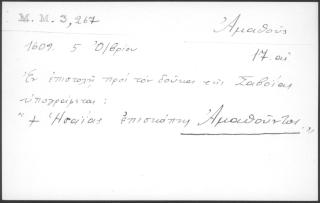 M. M. 3, 267 Ἀμαθοῦς
1609. 5 Ὀ/βρίου 17. αἰ
Ἐν ἐπιστολῇ πρὸς τὸν δοῦκα τῆς Σαβοΐας
ὑπογράφεται:
"+ Ἠσαΐας ἐπισκόπης Ἀμαθοῦντος"